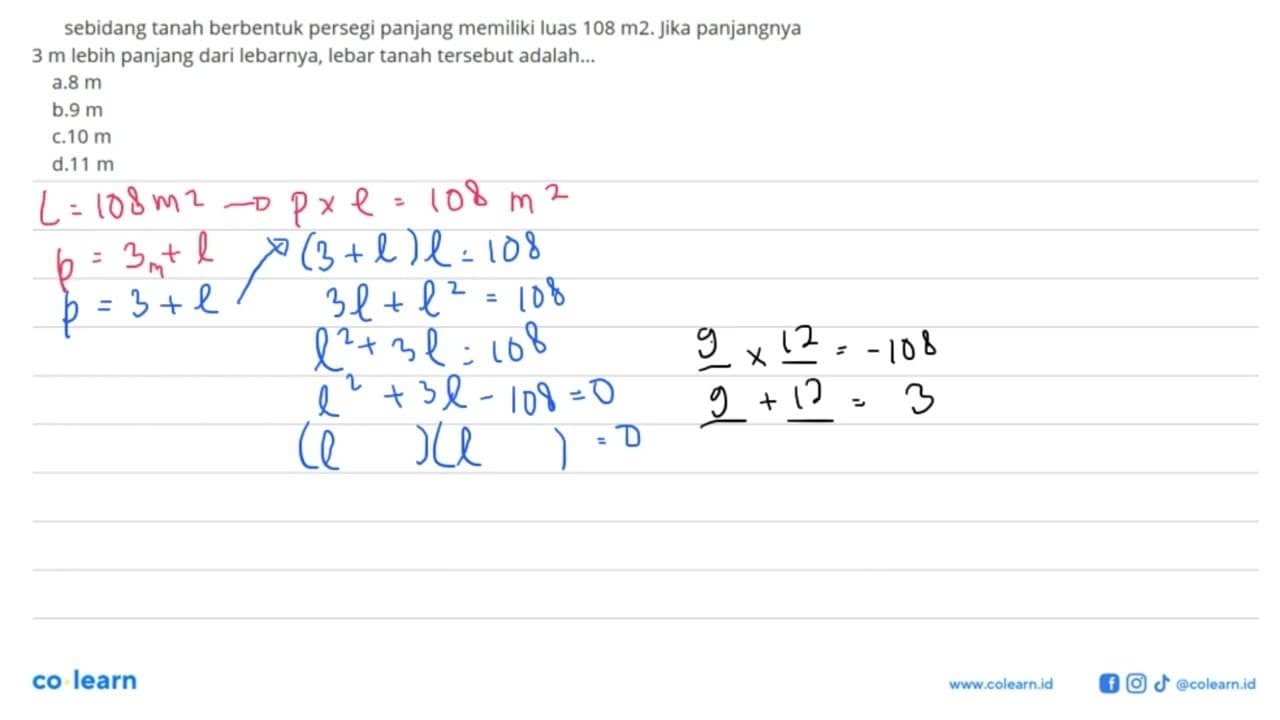 sebidang tanah berbentuk persegi panjang memiliki luas 108 m2. Jika panjangnya
3 m lebih panjang dari lebarnya, lebar tanah tersebut adalah...
a.8 m
b.9 m
c.10 m
d.11 m
L = 108 m2 → p x l = 108 m2
p = 3m + l
(3 + l) l = 108
p = 3 + l
3l + l² = 108
l² + 3l = 108
9 x 12 = -108
l² + 3l - 108 = 0
9 + 12 = 3
(l )(l ) = 0
co learn
www.colearn.id
@colearn.id